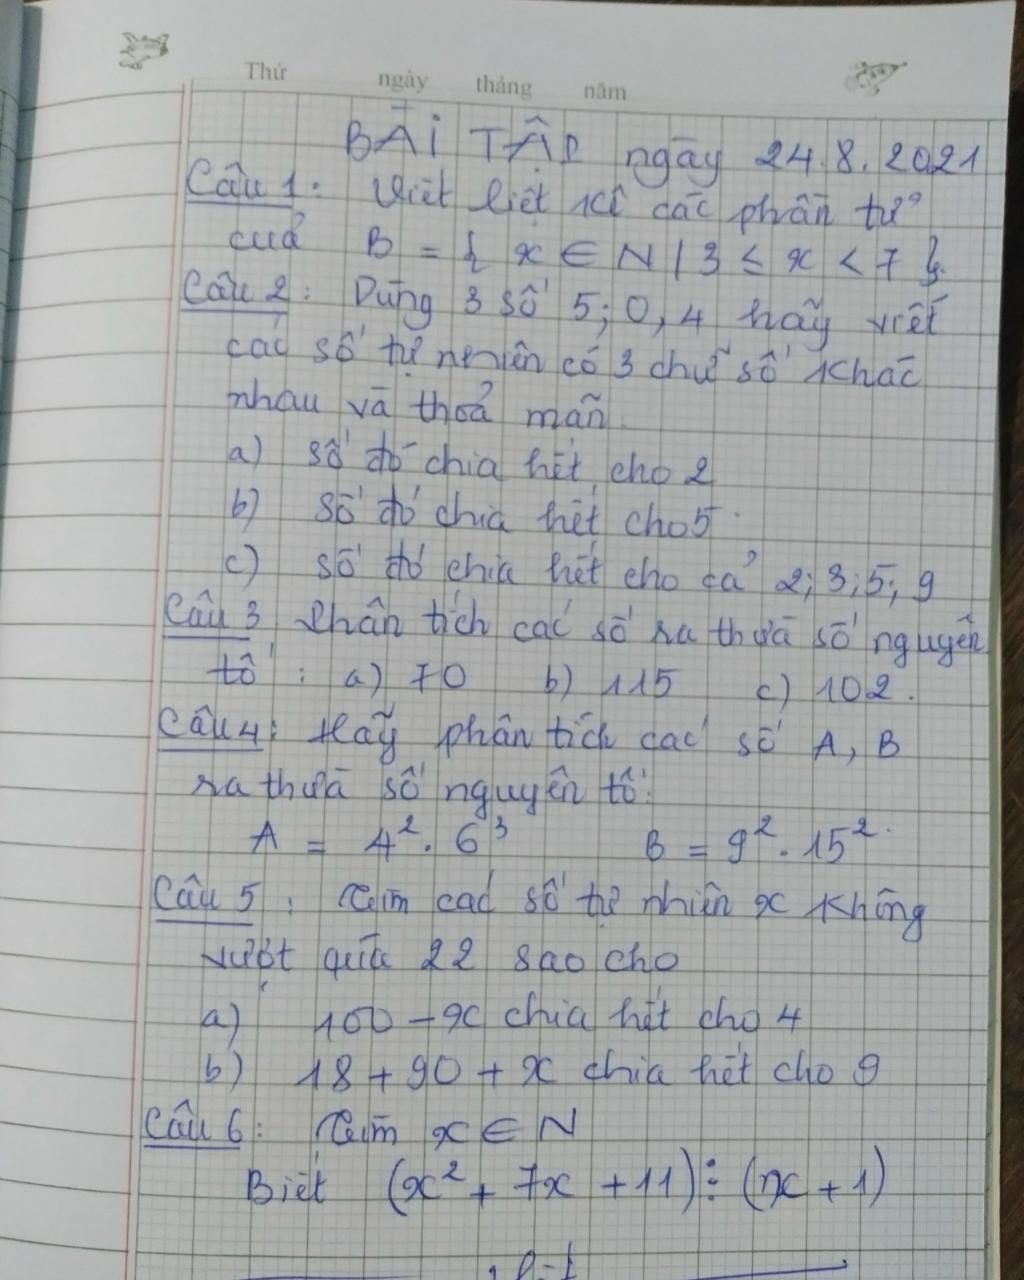 Thứ ngày tháng năm
BÀI TẬP ngày 24.8.2021
Câu 1: Viết liệt kê các phần tử
của B = { x ∈ N / 3 ≤ x < 7 }.
Câu 2: Dùng 3 số 5; 0, 4 hãy viết
các số tự nhiên có 3 chữ số khác
nhau và thoả mãn.
a) số đó chia hết cho 2
b) số đó chia hết cho 5.
c) số đó chia hết cho cả 2; 3; 5; 9
Câu 3 Phân tích các số ra thừa số nguyên
tố : a) 70 b) 115 c) 102.
Câu 4: Hãy phân tích các số A, B
ra thừa số nguyên tố:
A = 4². 6³ B = 9². 15².
Câu 5: Tìm các số tự nhiên x không
vượt qúa 22 sao cho
a) 100 - x chia hết cho 4
b) 18 + 90 + x chia hết cho 9
Câu 6: Tìm x ∈ N
Biết (x² + 7x + 11) ⋮ (x + 1)